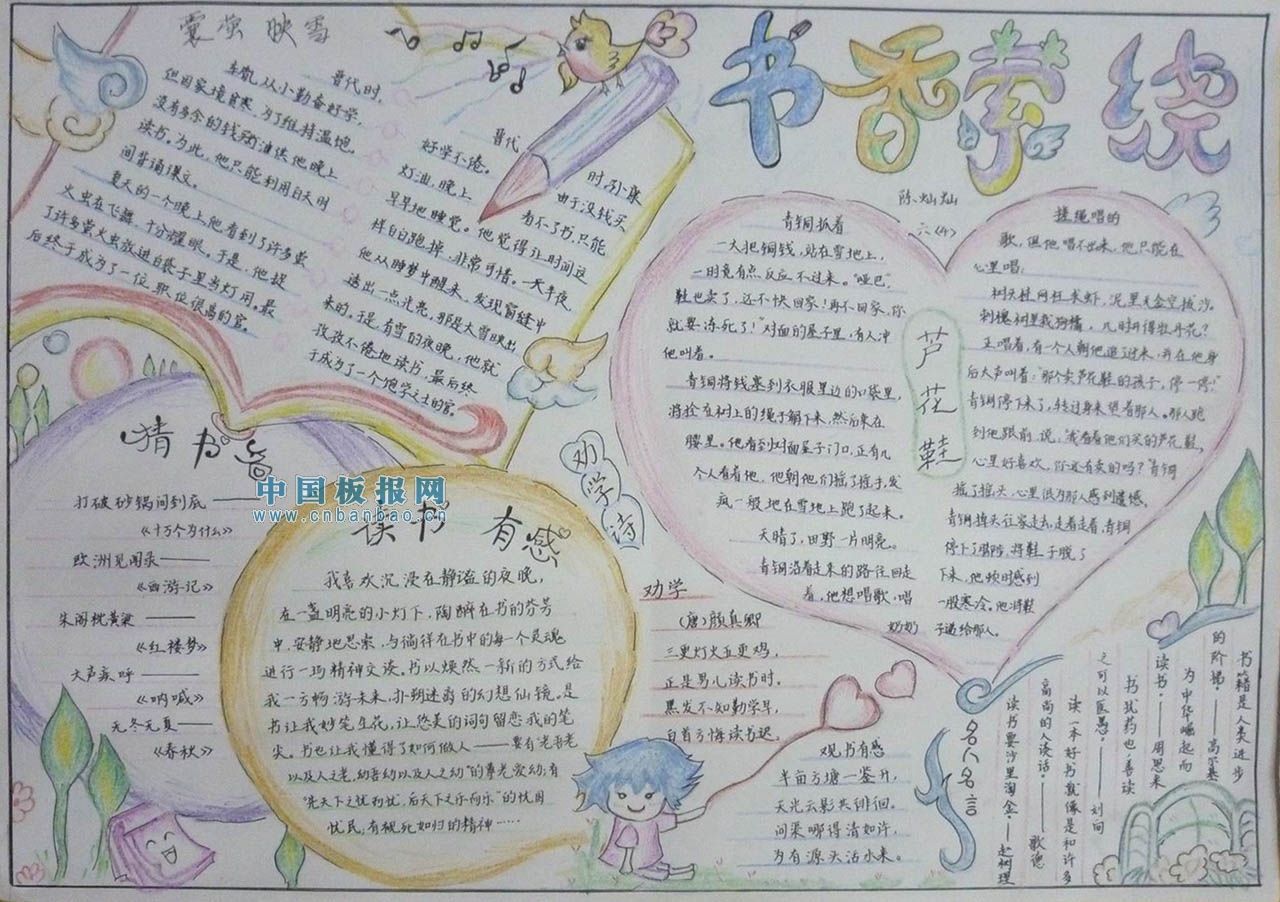 书香萦绕
陈灿灿
六(4)
囊萤映雪
晋代时,
车胤从小勤奋好学,
但因家境贫寒,为了维持温饱,
没有多余的钱 灯油供他晚上
读书。为此,他只能利用白天时
间背诵课文。
夏天的一个晚上,他看到了许多萤
火虫在飞舞,十分耀眼。于是,他捉
了许多萤火虫放进白袋子里当灯用。最
后终于成为了一位职位很高的官。
晋代 时,孙康
好学不倦。 由于没钱买
灯油,晚上 看不了书,只能
早早地睡觉。他觉得让时间这
样白白跑掉,非常可惜。一天半夜,
他从睡梦中醒来,发现窗缝中
透出一点光亮,那是大雪映出
来的。于是,有雪的夜晚,他就
孜孜不倦地读书,最后终
于成为了一个饱学之士的官。
猜书名
打破砂锅问到底——
《十万个为什么》
欧洲见闻录——
《西游记》
朱阁梳黄粱——
《红楼梦》
大声疾呼——
《呐喊》
无冬无夏——
《春秋》
中国板报网
www.cnbanbao.cn
读书有感
我喜欢沉浸在静谧的夜晚,
在一盏明亮的小灯下,陶醉在书的芬芳
中,安静地思索,与徜徉在书中的每一个灵魂
进行一场精神交谈。书以焕然一新的方式给
我一方畅游未来,扑朔迷离的幻想仙镜,是
书让我妙笔生花,让悠美的词句留恋我的笔
尖。书也让我懂得了如何做人——要有“老吾老
以及人之老,幼吾幼以及人之幼”的尊老爱幼;有
“先天下之忧而忧,后天下之乐而乐”的忧国
忧民,有视死如归的精神……
劝学诗
劝学
(唐)颜真卿
三更灯火五更鸡,
正是男儿读书时。
黑发不知勤学早,
白首方悔读书迟。
观书有感
半亩方塘一鉴开,
天光云影共徘徊。
问渠哪得清如许,
为有源头活水来。
芦花鞋
青铜抓着
一大把铜钱,站在雪地上,
一时竟有点反应不过来。“哑巴,
鞋也卖了,还不快回家!再不回家,你
就要冻死了!”对面的屋子里,有人冲
他叫着。
青铜将钱塞到衣服里边的口袋里,
将拴在树上的绳子解下来,然后束在
腰里。他看到对面屋子门口,正有几
个人看着他,他朝他们摇了摇手,发
疯一般地在雪地上跑了起来。
天晴了,田野一片明亮。
青铜沿着走来的路往回走
着,他想唱歌,唱
奶奶
搓绳唱的
歌,但他唱不出来,他只能在
心里唱:
树头挂网枉求虾,泥里无金空拨沙。
刺槐树里栽狗橘,几时开得牡丹花?
正唱着,有一个人朝他追了过来,并在他身
后大声叫着:“那个卖芦花鞋的孩子,停一停!”
青铜停下来了,转过身来望着那人。那人跑
到他跟前,说,“我看着他们买的芦花鞋,
心里好喜欢,你还有卖的吗?”青铜
摇了摇头,心里很为那人感到遗憾。
青铜掉头往家走去,走着走着,青铜
停下了脚步,将鞋子脱了
下来,他顿时感到
一股寒冷。他将鞋
子递给那人。
名人名言
书籍是人类进步
的阶梯。——高尔基
为中华崛起而
读书。——周恩来
书犹药也,善读
之可以医愚。——刘向
读一本好书就像是和许多
高尚的人谈话。——歌德
读书要沙里淘金。——赵树理